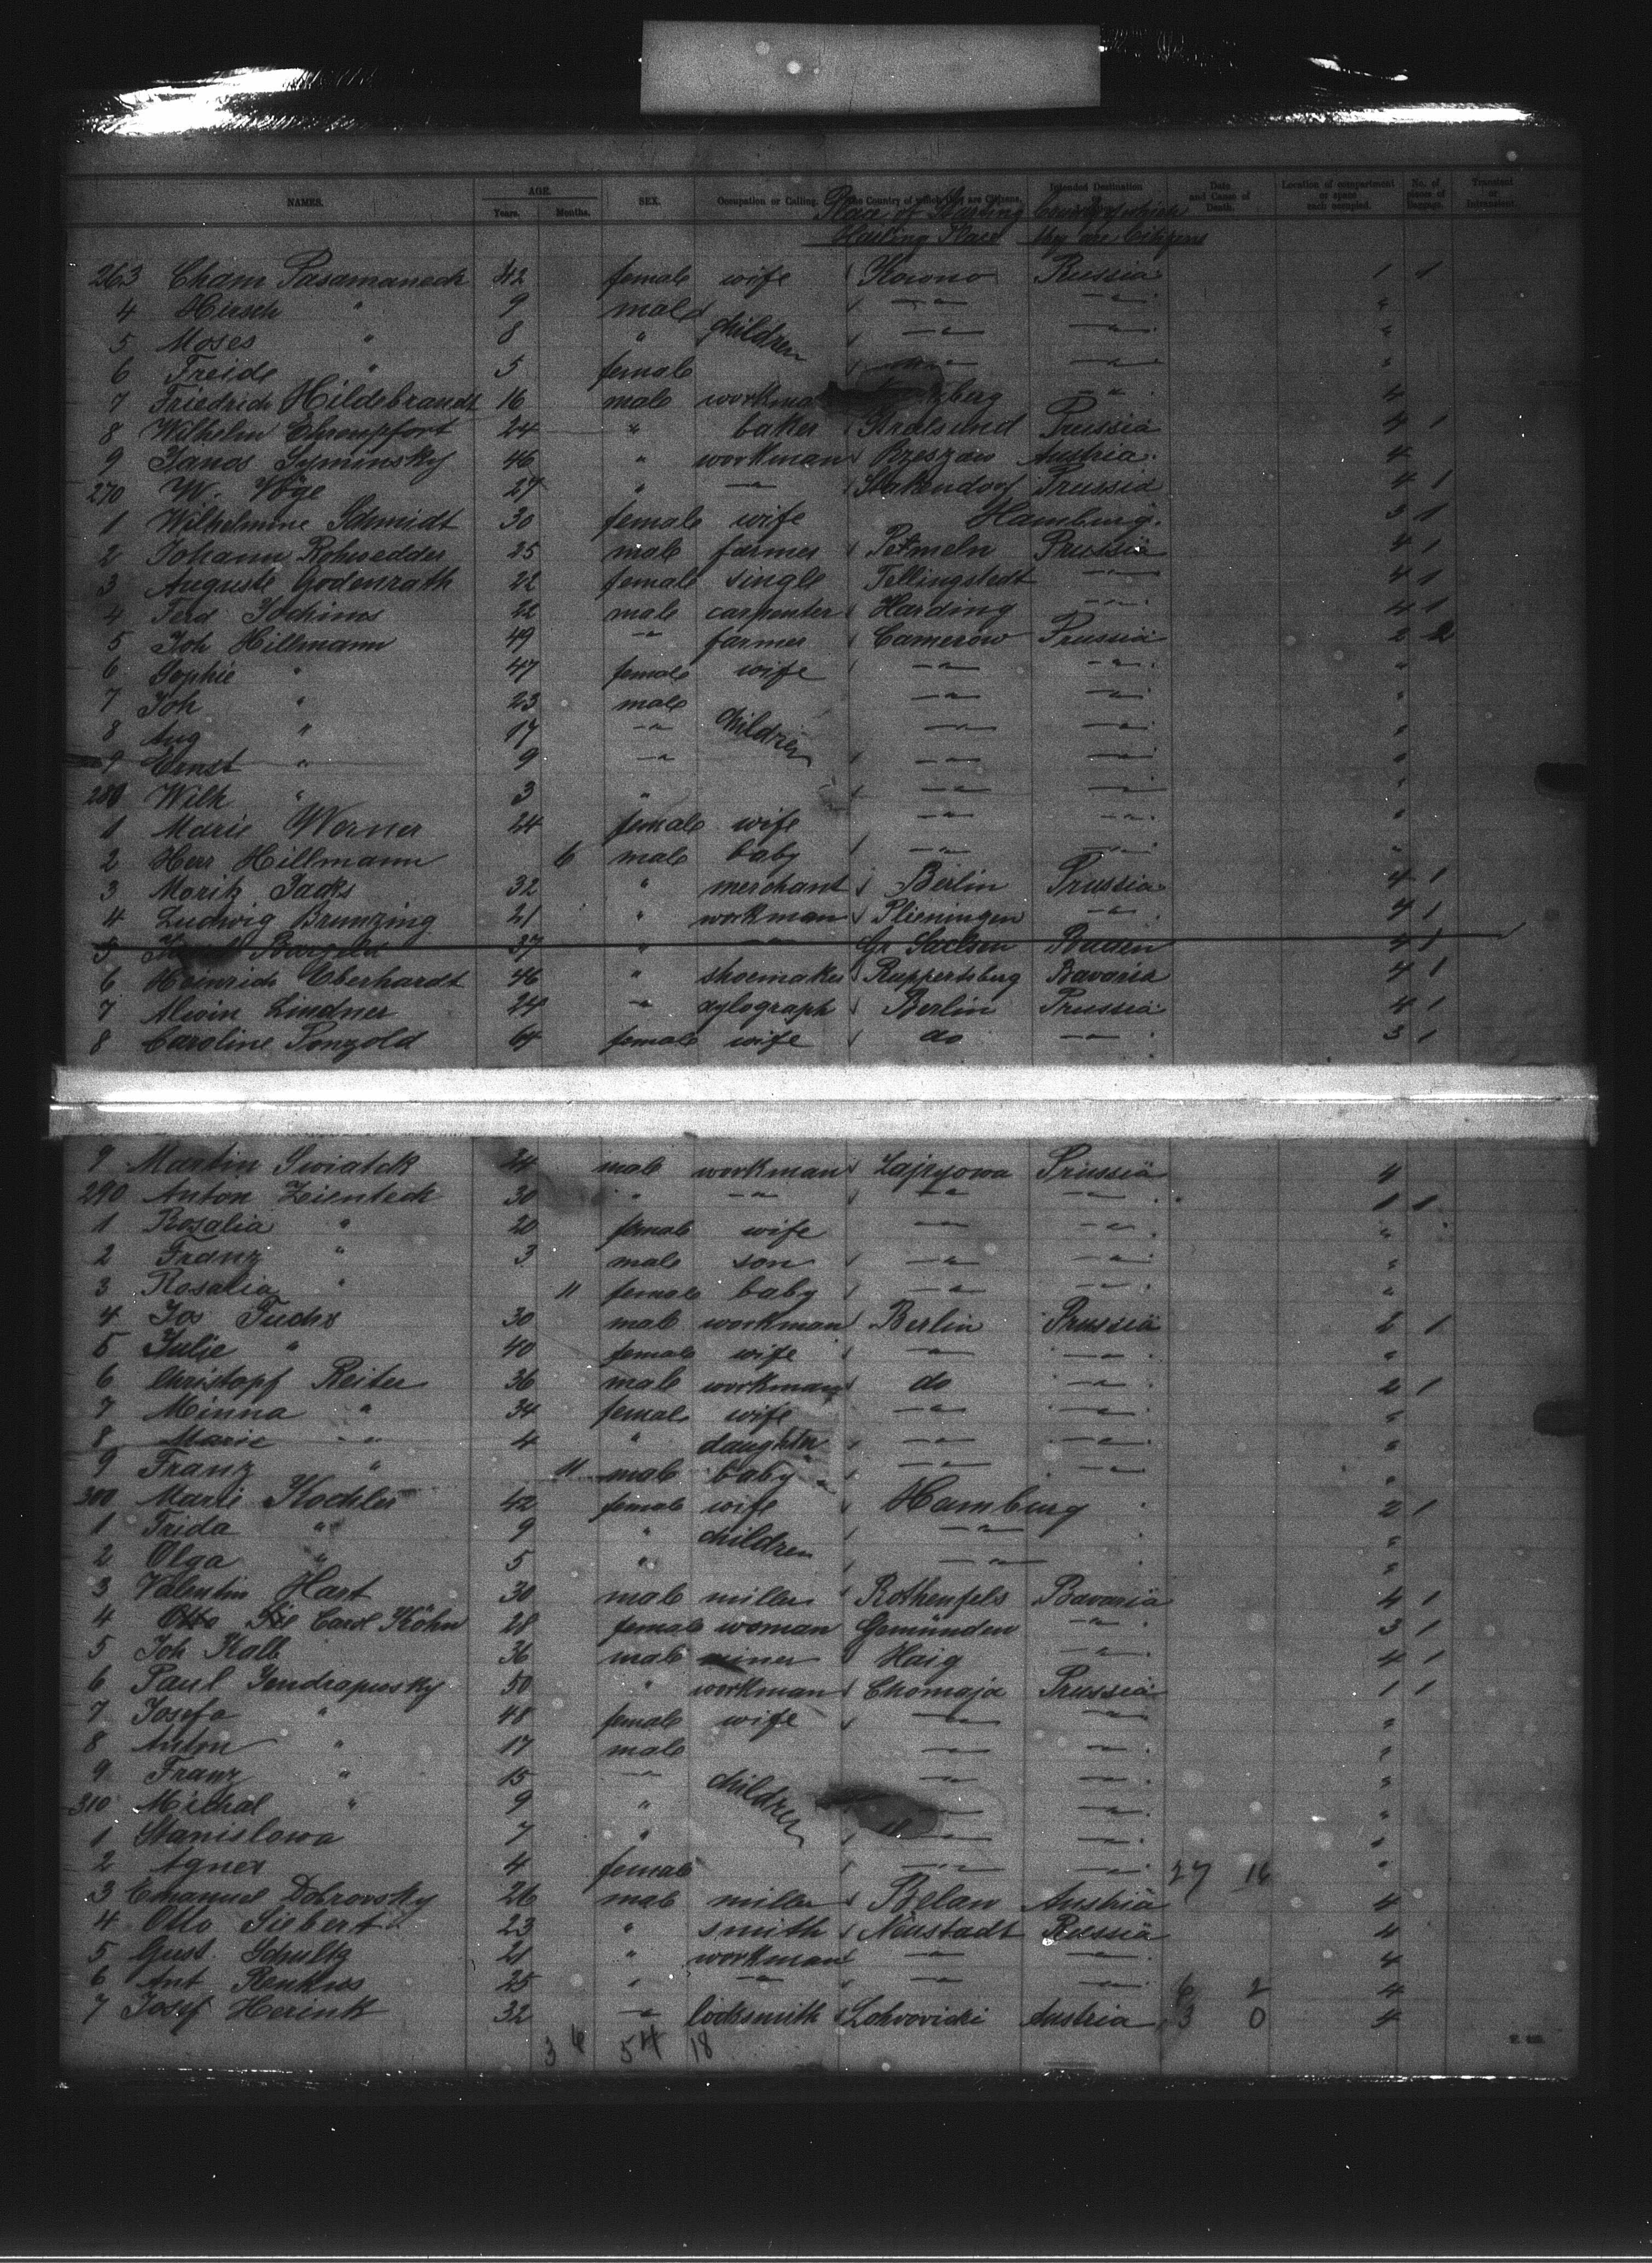 NAMES. AGE. Years. Months. SEX. Occupation or Calling. The Country of which they are Citizens. Intended Destination Date and Cause of Death. Location of compartment or space each occupied. No. of pieces of baggage. Transient or Intransient.
Place of Starting Country of which
Hailing Place they are Citizens
263 Cham Pasamaneck 42 female wife Kowno Russia 1 1
4 Hirsch " 9 male children —"— —"— "
5 Moses " 8 " —"— —"— "
6 Freide " 5 female —"— —"— "
7 Friedrich Hildebrandt 16 male —"— 4
8 Wilhelm Ehrenpfort 24 " baker Stralsund Prussia 4 1
9 Janos Syminsky 46 " workman Rzeszow Austria 4
270 W. Vöge 27 " —"— Stakendorf Prussia 4 1
1 Wilhelmine Schmidt 30 female wife Hamburg 3 1
2 Johann Rohwedder 25 male farmer Prussia 4 1
3 Auguste Godenrath 22 female single Tellingstedt —"— 4 1
4 Ferd Jochims 22 male carpenter Harding —"— 4 1
5 Joh Hillmann 49 —"— farmer Camerow Prussia 2 2
6 Sophie " 47 female wife —"— —"— "
7 Joh " 23 male children —"— —"— "
8 Aug " 17 —"— —"— —"— "
9 Ernst " 9 —"— —"— —"— "
280 Wilh " 3 " —"— —"— "
1 Marie Werner 24 female wife —"— —"— "
2 Herr Hillmann 6 male baby —"— —"— "
3 Moritz Sacks 32 " merchant Berlin Prussia 4 1
4 Ludwig Brunzing 21 " workman Plieningen —"— 4 1
5 37 " —"— Gr Sachsen Baden 4 1
6 Heinrich Eberhardt 46 " shoemaker Ruppertsberg Bavaria 4 1
7 Alwin Lindner 24 —"— xylograph Berlin Prussia 4 1
8 Caroline Ponzold 64 female wife do —"— 3 1
9 Martin Swiatek 34 male workman Prussia 4
290 Anton Zienteck 30 " —"— —"— —"— 1 1
1 Rosalia " 20 female wife —"— —"— "
2 Franz " 3 male son —"— —"— "
3 Rosalia " 11 female baby —"— —"— "
4 Jos Fuchs 30 male workman Berlin Prussia 2 1
5 Julie " 40 female wife —"— —"— "
6 Christopf Reiter 36 male workman do —"— 2 1
7 Minna " 34 female wife —"— —"— "
8 Marie —"— 4 " daughter —"— —"— "
9 Franz " 11 male baby —"— —"— "
300 Marie Kochler 42 female wife Hamburg 2 1
1 Frida " 9 " children —"— "
2 Olga " 5 " —"— "
3 Valentin Hart 30 male miller Rothenfels Bavaria 4 1
4 Carol Köhn 28 female woman Gemünden —"— 3 1
5 Joh Kalb 36 male miner Haig —"— 4 1
6 Paul 50 " workman Chomaja Prussia 1 1
7 Josefa " 48 female wife —"— —"— "
8 Anton " 17 male children —"— —"— "
9 Franz " 15 —"— —"— —"— "
310 Michal " 9 " —"— —"— "
1 Stanislowa 7 " —"— —"— "
2 Agnes 4 female —"— —"— 27 16 "
3 Emanuel Dobrovsky 26 male miller Belaw Austria 4
4 Otto Siebert 23 " smith Neustadt Russia 4
5 Gust. Schultz 21 " workman —"— —"— 4
6 Ant 25 " —"— " —"— 6 2 4
7 Josef Herink 32 —"— locksmith Austria 3 0 4
3 6 54 18